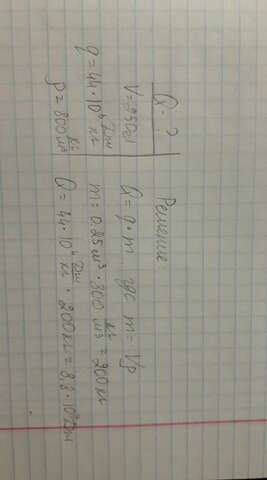 Q - ?
V = 250 л
q = 44 · 10⁶ Дж/кг
ρ = 800 кг/м³
Решение
Q = q · m, где m = Vρ
m = 0.25 м³ · 800 кг/м³ = 200 кг
Q = 44 · 10⁶ Дж/кг · 200 кг = 8,8 · 10⁹ Дж